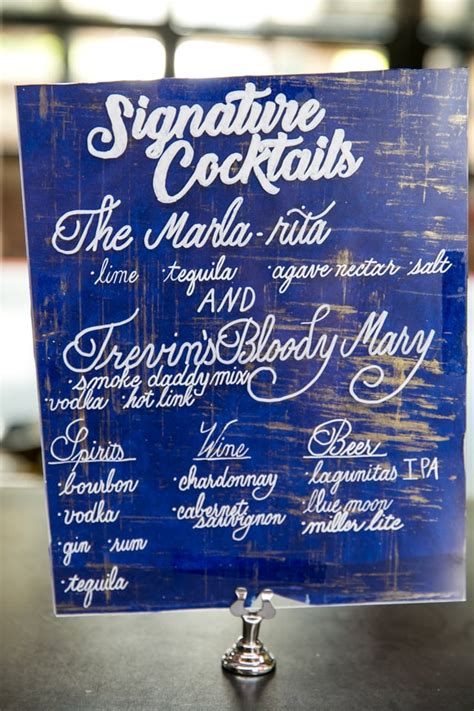 Signature
Cocktails
The Marla-rita
·lime ·tequila ·agave nectar ·salt
AND
Trevin's Bloody Mary
·smoke daddy mix
·vodka ·hot link
Spirits
·bourbon
·vodka
·gin ·rum
·tequila
Wine
·chardonnay
·cabernet
sauvignon
Beer
·lagunitas IPA
·blue moon
·miller lite